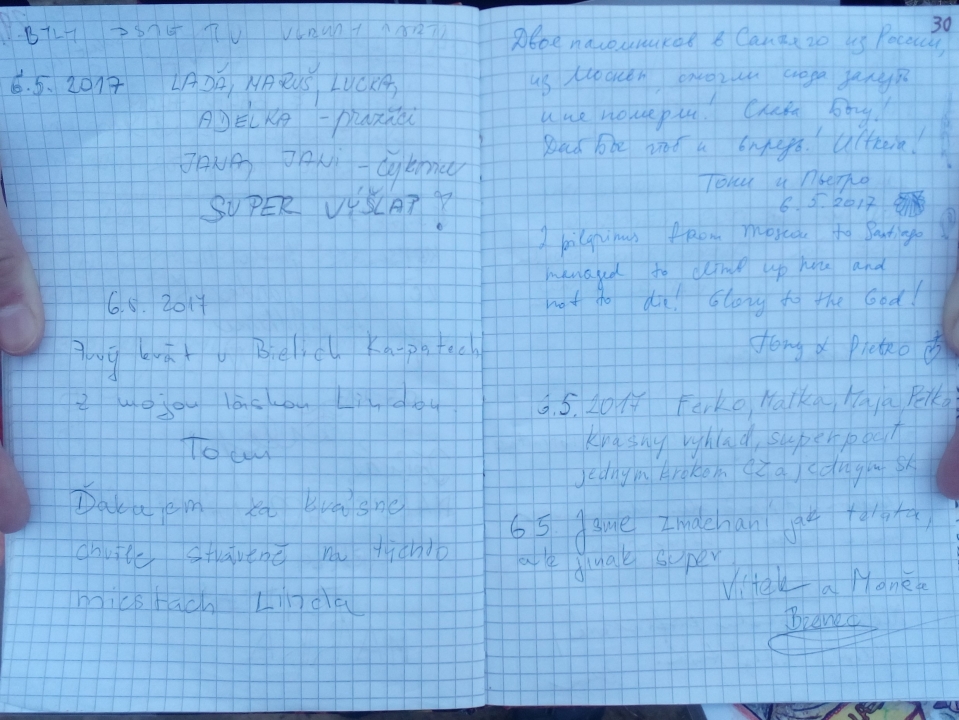 BYLI JSME TU
6.5.2017 LAĎA, MARUŠ, LUCKA,
ADÉLKA - pražáci
JANA, JANI -
SUPER VÝŠLAP!
6.5. 2017
Prvý krát v Bielich Karpatech
z mojou láskou Lindou.
Tom
Ďakujem za krásne
chvíle strávené na týchto
miestach Linda
30
Двое паломников в Сантьяго из России,
из Москвы, смогли сюда залезть
и не померли! Слава Богу!
Дай Бог чтоб и впредь! Ultreia!
Тони и Пьетро
6.5.2017
2 pilgrims from Moscow to Santiago
managed to climb up here and
not to die! Glory to the God!
Tony & Pietro
6.5.2017 Ferko, Maťka, Maja, Peťko
krásny výhlad, super pocit
jedným krokom CZ a jedným SK
6.5. Jsme zmdchaní jak telata,
ale jinak super
Vítek a Monča
Brenec